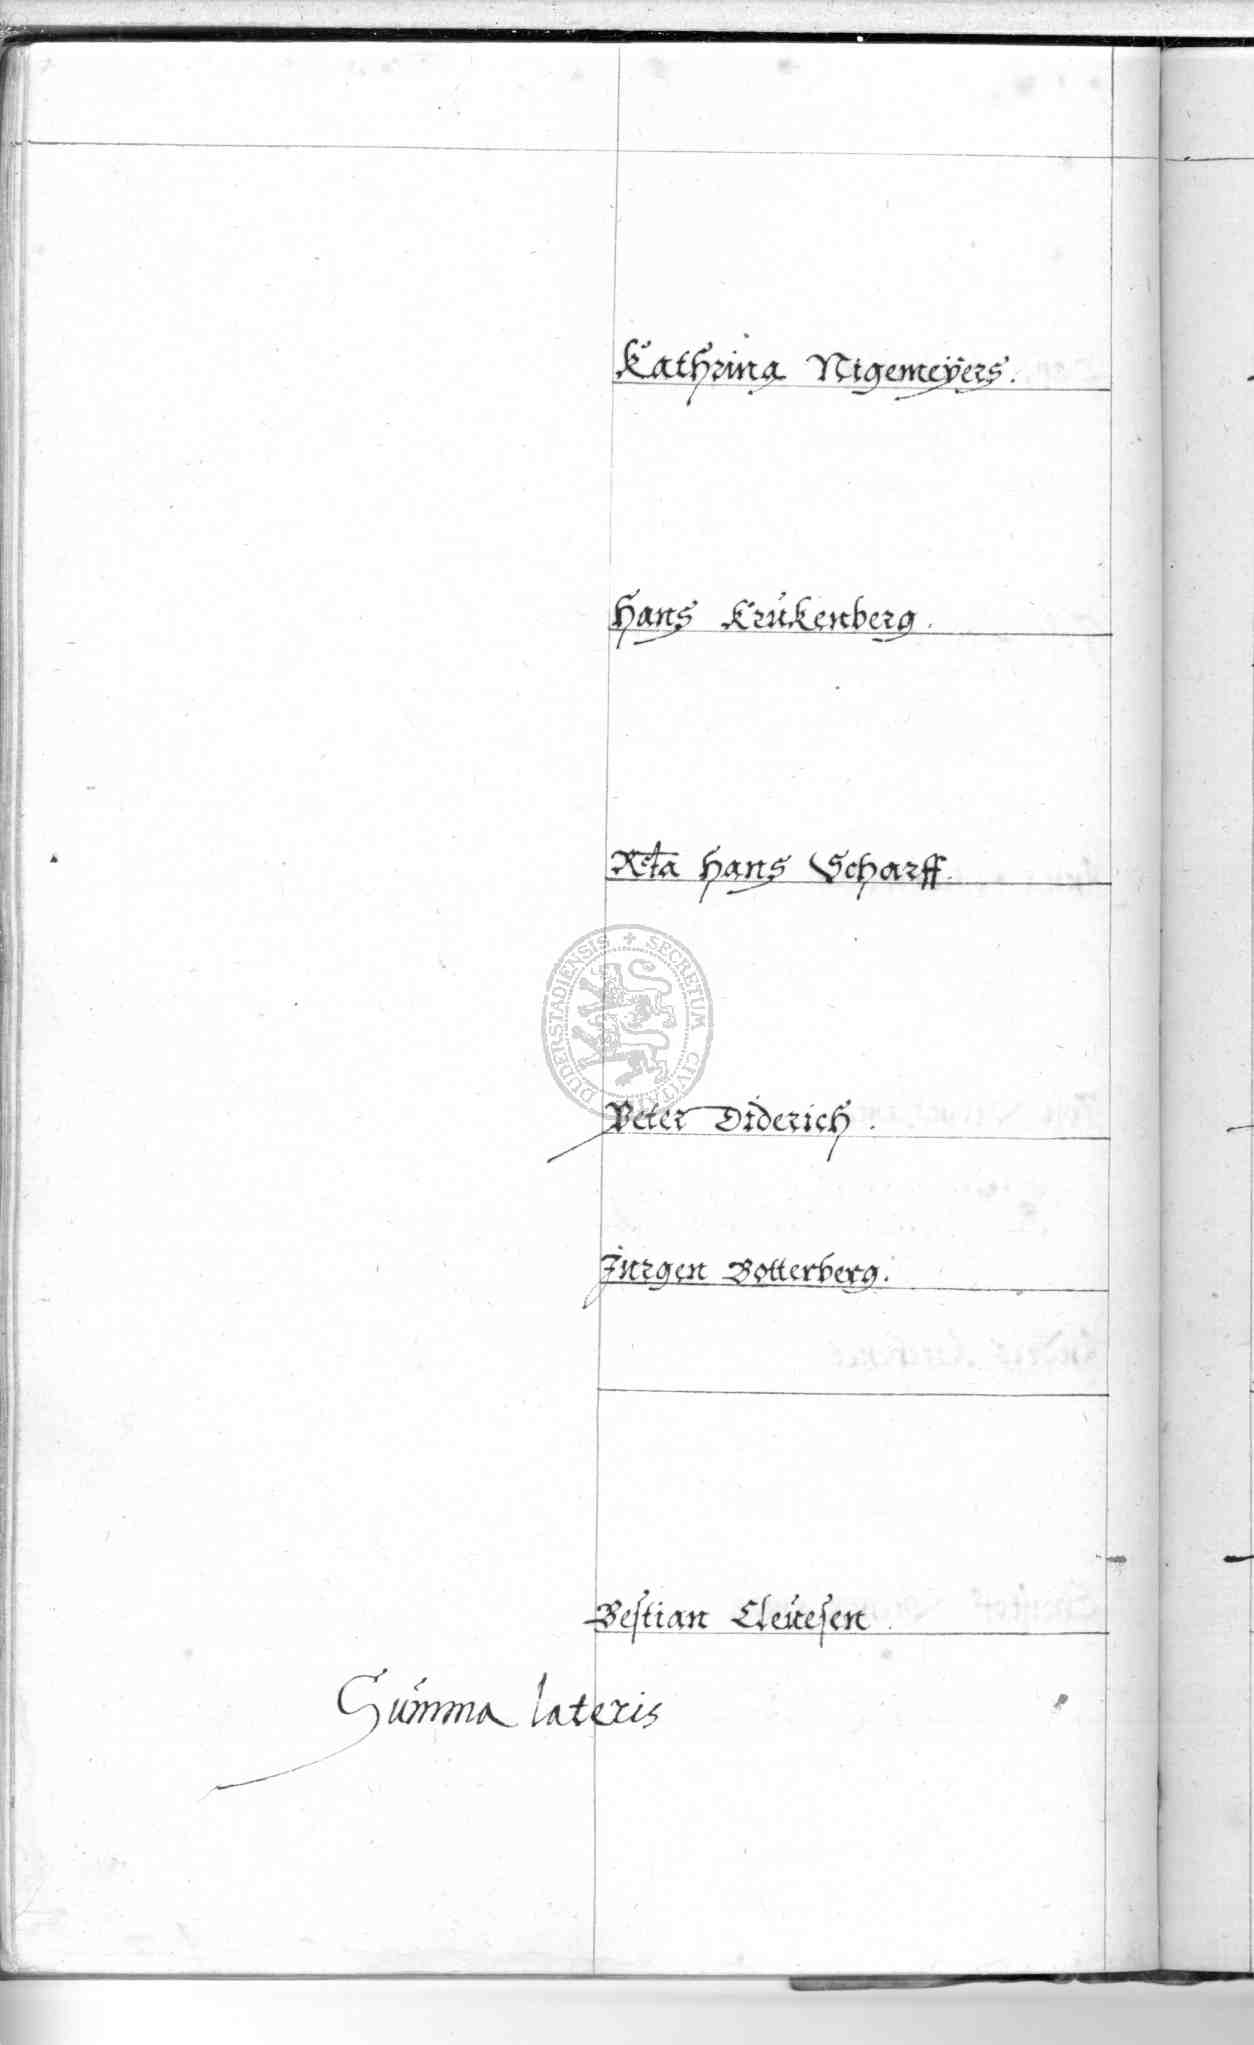 Kathrina Nigemeÿers.
Hans Krukenberg.
Rcta Hans Scharff.
SECRETUM CIVITA DUDERSTADIENSIS
Peter Diderich.
Jurgen Botterberg.
Bestian Cleuesen.
Summa lateris